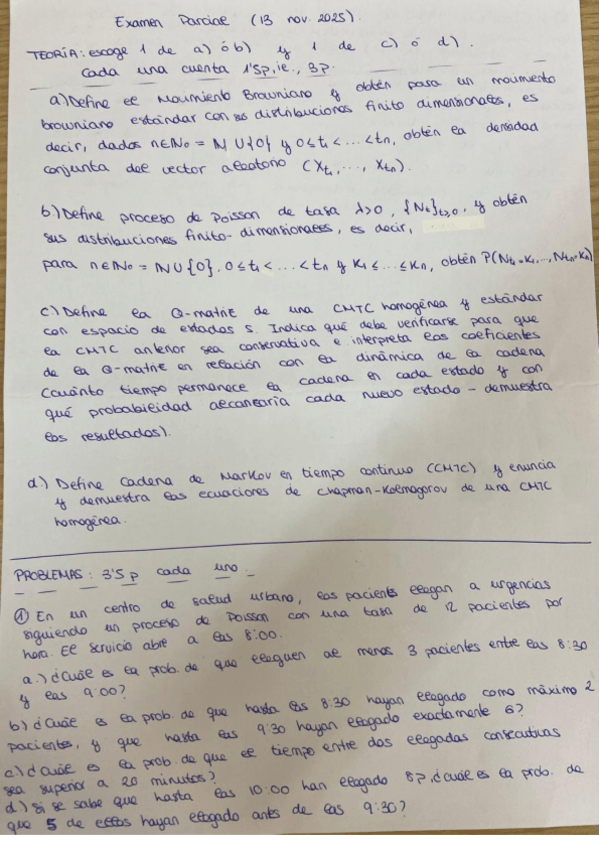 Examen Parcial (13 nov. 2025).
TEORÍA: escoge 1 de a) ó b) y 1 de c) ó d).
Cada una cuenta 1'5p, ie., 3p.
a) Define el Movimiento Browniano y obtén para un movimiento
browniano estándar con sus distribuciones finito dimensionales, es
decir, dados n∈N₀ = N∪{0} y 0≤t₁<...<tn, obtén la densidad
conjunta del vector aleatorio (Xt₁, ..., Xtn).
b) Define proceso de Poisson de tasa λ>0, {Nt}t≥0, y obtén
sus distribuciones finito-dimensionales, es decir,
para n∈N₀ = N∪{0}, 0≤t₁<...<tn y K₁≤...≤Kn, obtén P(Nt₁=K₁,...,Ntn=Kn)
c) Define la Q-matriz de una CMTC homogénea y estándar
con espacio de estados S. Indica qué debe verificarse para que
la CMTC anterior sea conservativa e interpreta los coeficientes
de la Q-matriz en relación con la dinámica de la cadena
(cuánto tiempo permanece la cadena en cada estado y con
qué probabilidad alcanzaría cada nuevo estado - demuestra
los resultados).
d) Define Cadena de Markov en tiempo continuo (CMTC) y enuncia
y demuestra las ecuaciones de Chapman-Kolmogorov de una CMTC
homogénea.
PROBLEMAS: 3'5 p cada uno.
① En un centro de salud urbano, los pacients llegan a urgencias
siguiendo un proceso de Poisson con una tasa de 12 pacientes por
hora. El servicio abre a las 8:00.
a.) ¿Cuál es la prob. de que lleguen al menos 3 pacientes entre las 8:30
y las 9:00?
b) ¿Cuál es la prob. de que hasta las 8:30 hayan llegado como máximo 2
pacientes, y que hasta las 9:30 hayan llegado exactamente 6?
c) ¿Cuál es la prob. de que el tiempo entre dos llegadas consecutivas
sea superior a 20 minutos?
d.) Si se sabe que hasta las 10:00 han llegado 8p, ¿cuál es la prob. de
que 5 de ellos hayan llegado antes de las 9:30?